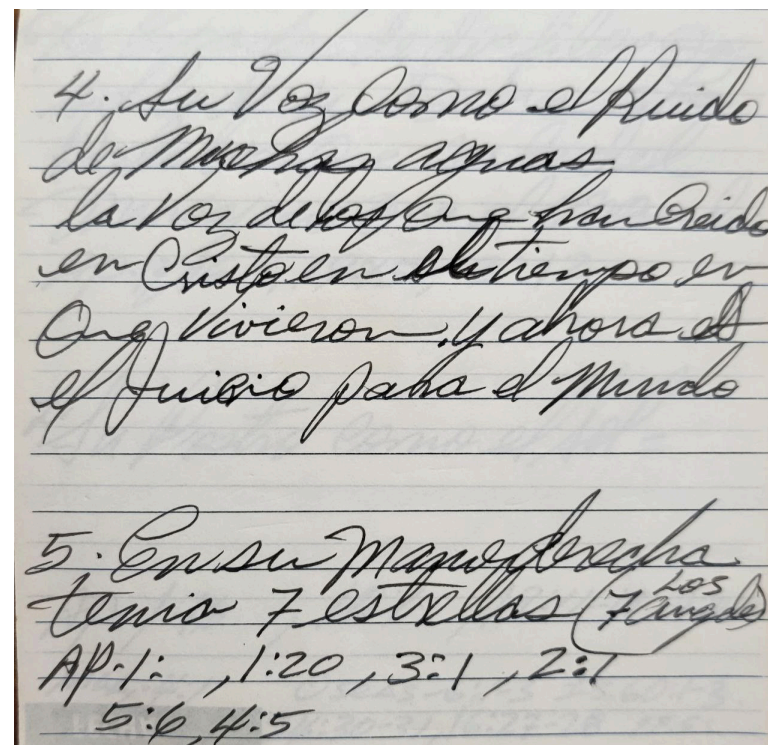 4. Su Voz como el Ruido
de Muchas aguas
la Voz de los que han Creido
en Cristo en su tiempo en
que Vivieron. y ahora es
el Juicio para el Mundo
5. En su Mano derecha
tenia 7 estrellas (7 Los angeles)
AP-1: , 1:20 , 3:1 , 2:1
5:6, 4:5